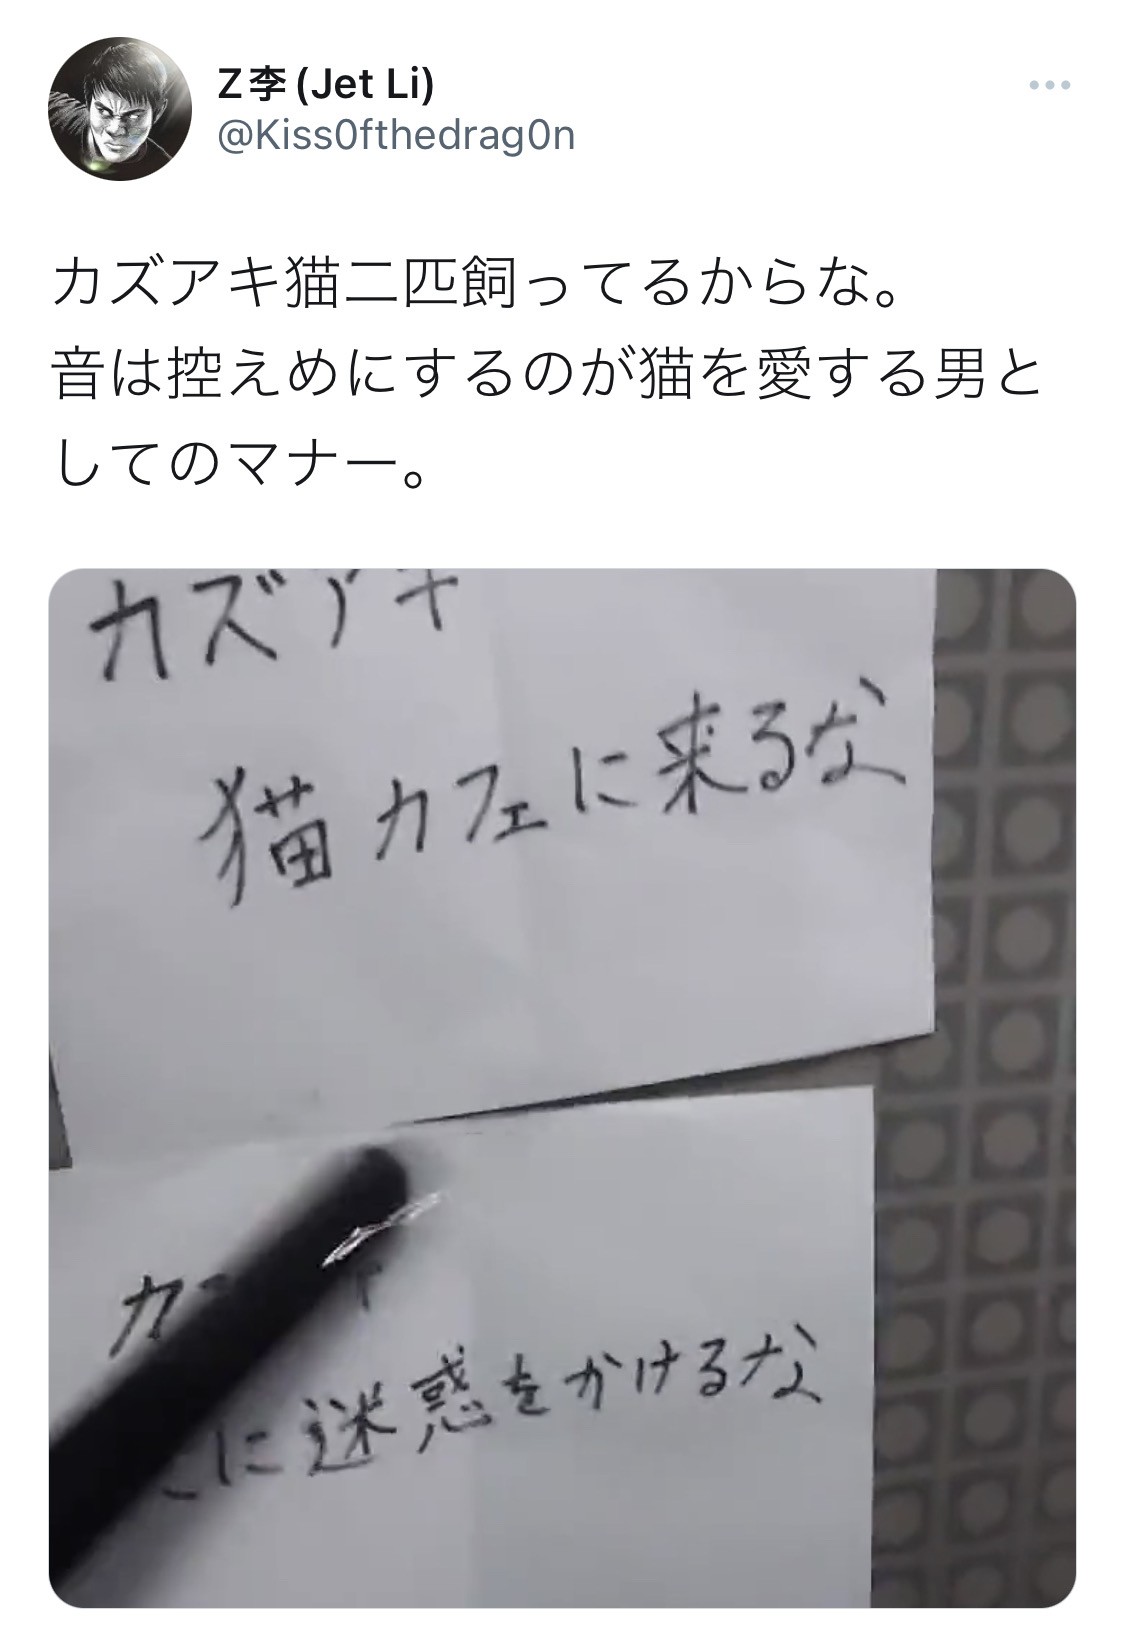 Z李(Jet Li)
@Kiss0fthedrag0n
カズアキ猫二匹飼ってるからな。
音は控えめにするのが猫を愛する男と
してのマナー。
カズアキ
猫カフェに来るな
に迷惑をかけるな